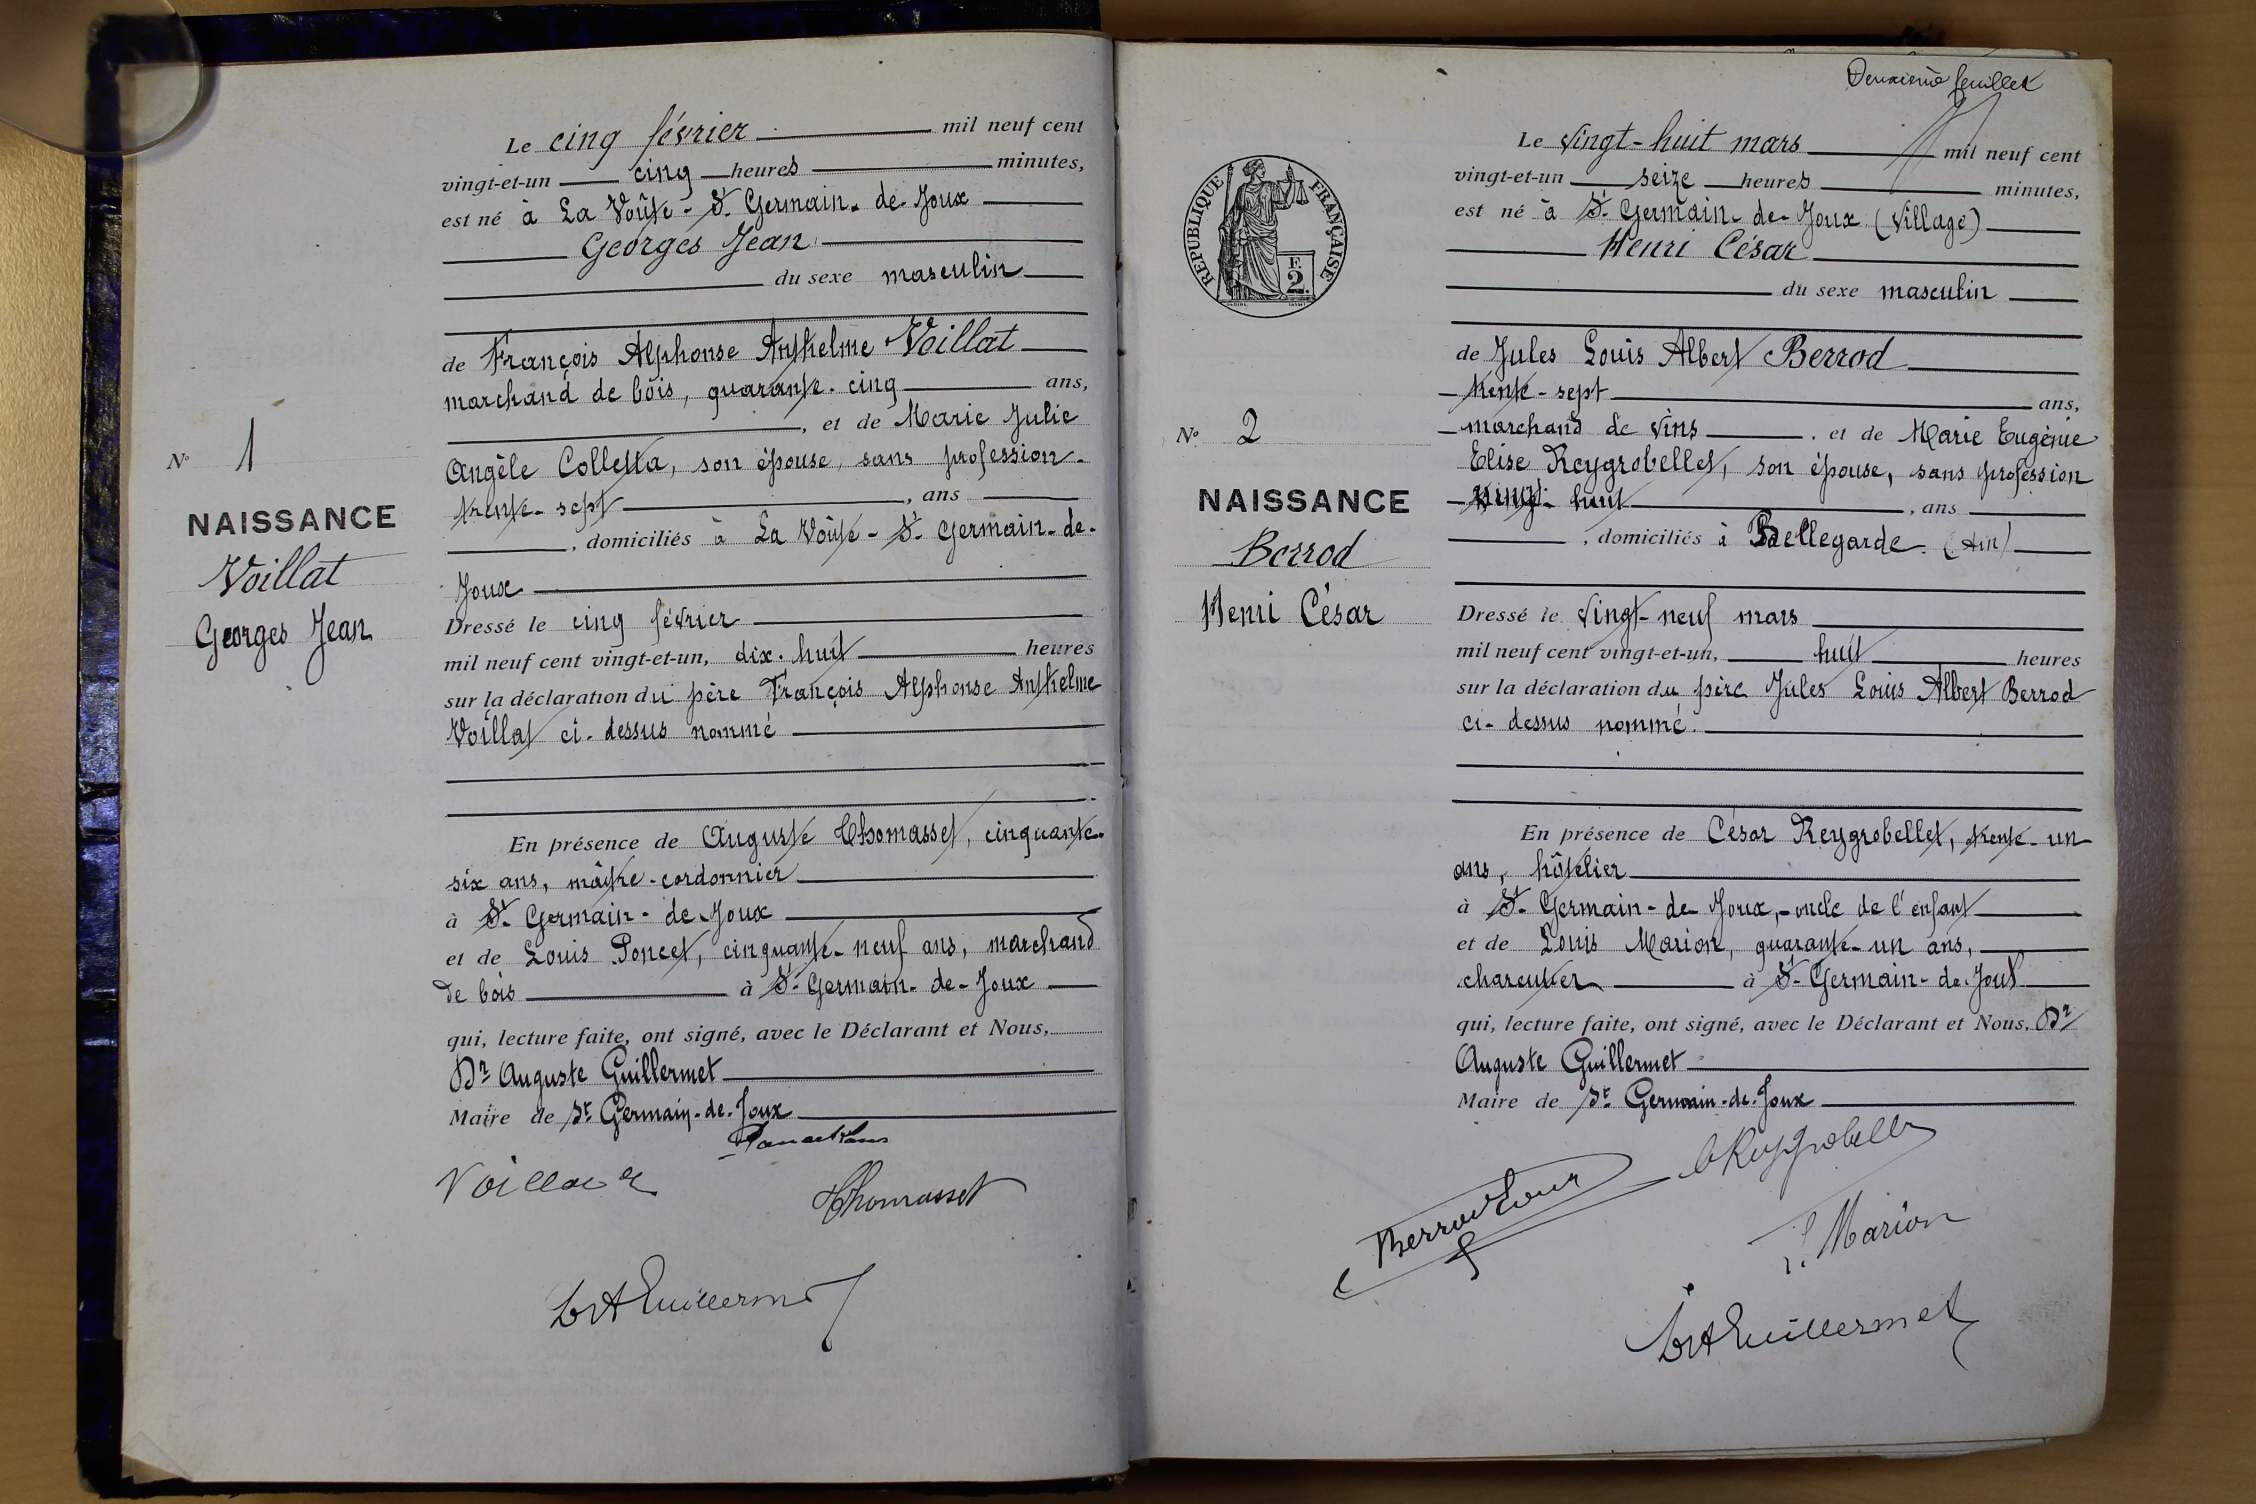 Le cinq février mil neuf cent
vingt-et-un cinq heures minutes,
est né à La Voûte - St Germain-de-Joux
Georges Jean
du sexe masculin
de François Alphonse Anthelme Voillat
marchand de bois, quarante-cinq ans,
, et de Marie Julie
Angèle Colletta, son épouse, sans profession-
trente-sept , ans
, domiciliés à La Voûte - St Germain-de-
Joux
Dressé le cinq février
mil neuf cent vingt-et-un, dix-huit heures
sur la déclaration du père François Alphonse Anthelme
Voillat ci-dessus nommé
En présence de Auguste Thomasset, cinquante-
six ans, maître-cordonnier
à St Germain-de-Joux
et de Louis Poncet, cinquante-neuf ans, marchand
de bois à St Germain-de-Joux
qui, lecture faite, ont signé, avec le Déclarant et Nous,
Dr Auguste Guillermet
Maire de St Germain-de-Joux
Thomasset
DrA Guillermet
No 1
NAISSANCE
Voillat
Georges Jean
Deuxième feuillet
RÉPUBLIQUE FRANÇAISE
F.
2.
Le vingt-huit mars mil neuf cent
vingt-et-un seize heures minutes,
est né à St Germain-de-Joux (Village)
Henri César
du sexe masculin
de Jules Louis Albert Berrod
trente-sept ans,
marchand de vins , et de Marie Eugénie
Elise Reygrobellet, son épouse, sans profession
vingt-huit , ans
, domiciliés à Bellegarde (Ain)
Dressé le vingt-neuf mars
mil neuf cent vingt-et-un, huit heures
sur la déclaration du père Jules Louis Albert Berrod
ci-dessus nommé.
En présence de César Reygrobellet, trente-un
ans, hôtelier
à St Germain-de-Joux, oncle de l'enfant
et de Louis Marion, quarante-un ans,
charcutier à St Germain-de-Joux
qui, lecture faite, ont signé, avec le Déclarant et Nous, Dr
Auguste Guillermet
Maire de St Germain-de-Joux
Berrod Louis
C Reygrobellet
L. Marion
DrA Guillermet
No 2
NAISSANCE
Berrod
Henri César